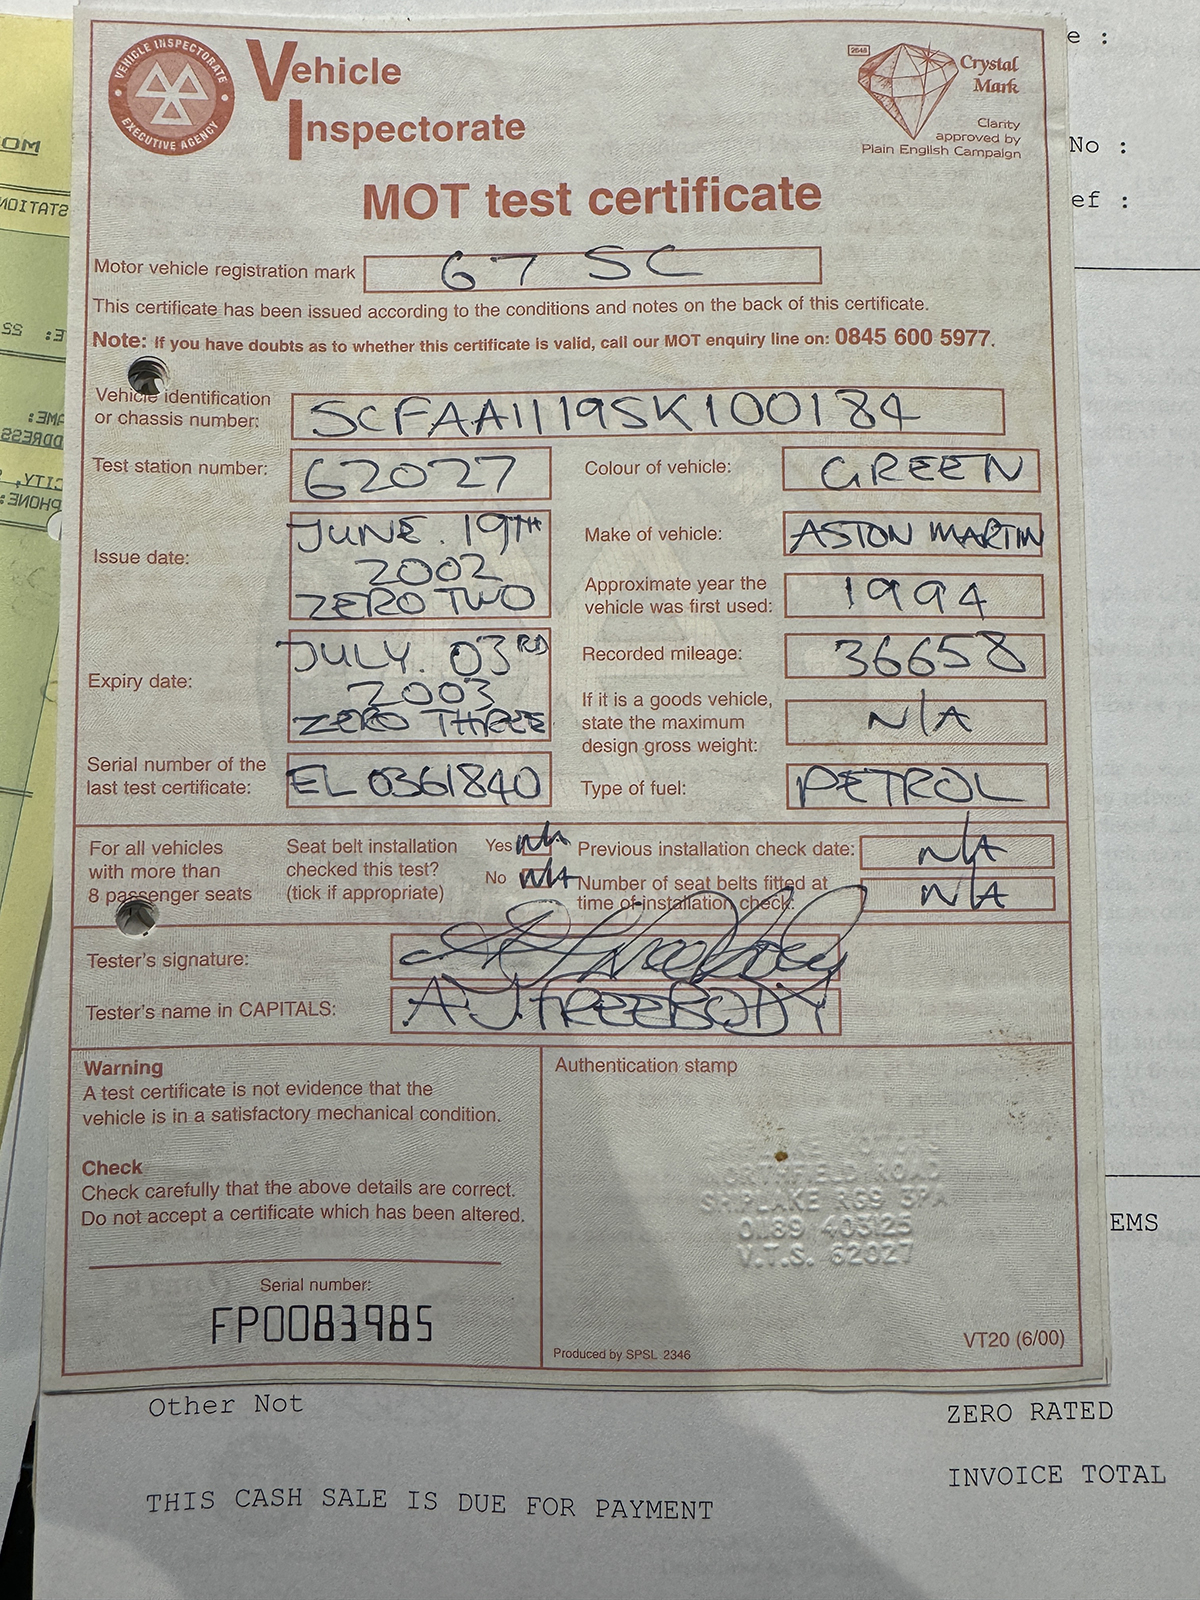 VEHICLE INSPECTORATE
EXECUTIVE AGENCY
Vehicle
Inspectorate
2648
Crystal
Mark
Clarity
approved by
Plain English Campaign
MOT test certificate
Motor vehicle registration mark 67 SC
This certificate has been issued according to the conditions and notes on the back of this certificate.
Note: If you have doubts as to whether this certificate is valid, call our MOT enquiry line on: 0845 600 5977.
Vehicle identification
or chassis number: SCFAA1119SK100184
Test station number: 62027
Colour of vehicle: GREEN
Issue date: JUNE. 19TH
2002
ZERO TWO
Make of vehicle: ASTON MARTIN
Approximate year the
vehicle was first used: 1994
Expiry date: JULY. 03RD
2003
ZERO THREE
Recorded mileage: 36658
If it is a goods vehicle,
state the maximum
design gross weight: N/A
Serial number of the
last test certificate: EL 0361840
Type of fuel: PETROL
For all vehicles
with more than
8 passenger seats
Seat belt installation
checked this test?
(tick if appropriate)
Yes N/A
No N/A
Previous installation check date: N/A
Number of seat belts fitted at
time of installation check: N/A
Tester's signature:
Tester's name in CAPITALS: A.J. FREEBODY
Warning
A test certificate is not evidence that the
vehicle is in a satisfactory mechanical condition.
Check
Check carefully that the above details are correct.
Do not accept a certificate which has been altered.
Serial number:
FP0083985
Authentication stamp
NORTHFIELD ROAD
SHIPLAKE RG9 3PA
01189 403125
V.T.S. 62027
Produced by SPSL 2346
VT20 (6/00)
e :
No :
ef :
EMS
Other Not
ZERO RATED
INVOICE TOTAL
THIS CASH SALE IS DUE FOR PAYMENT